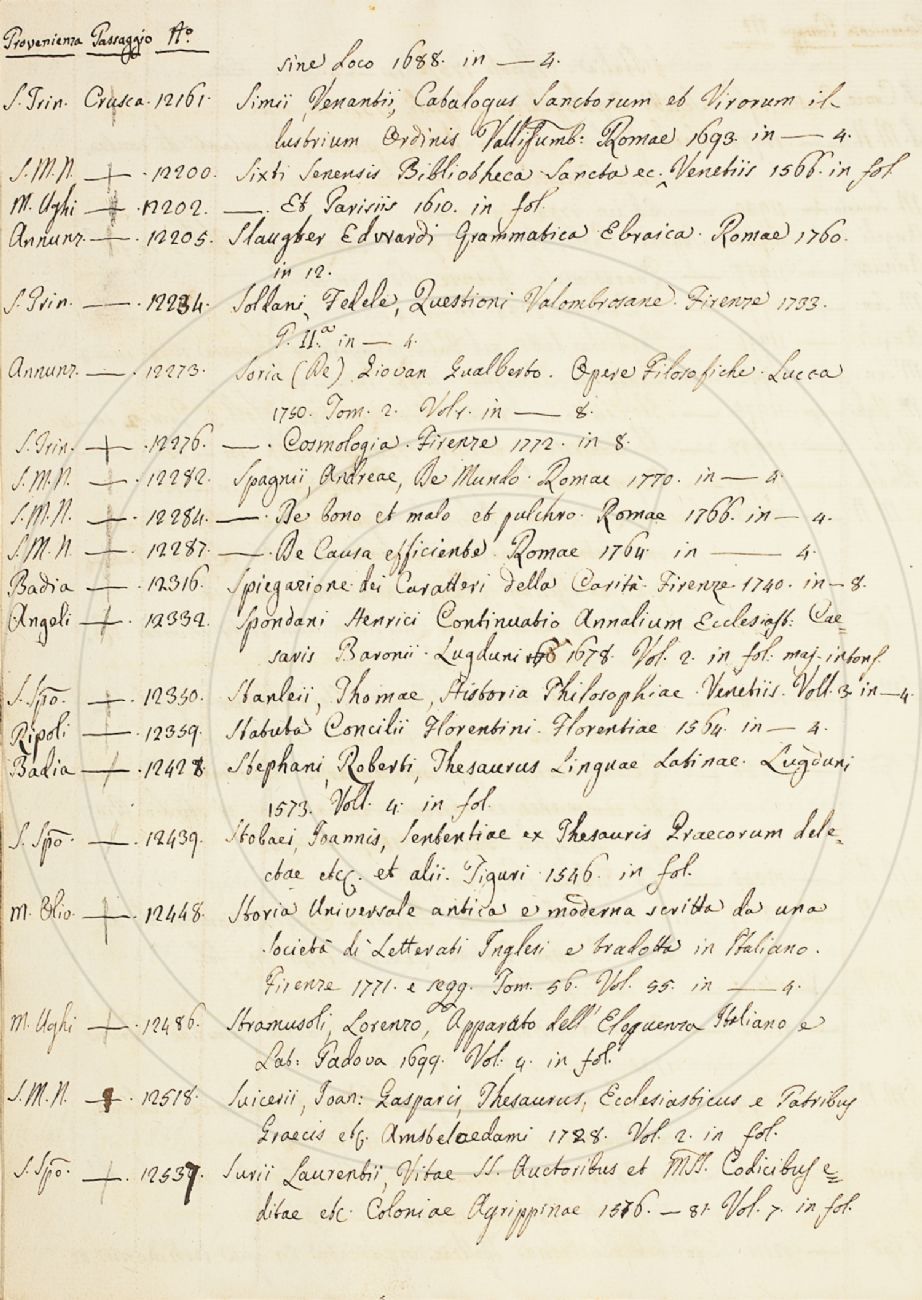 Provenienza Passaggio Nº
sine Loco 1688. in — 4.
S. Trin. Crusca. 12161. Simii, Venantii, Catalogus Sanctorum et Virorum il-
lustrium Ordinis Vallisumb: Romae 1693. in — 4.
S. M. N. — . 12200. Sixti Senensis Bibliotheca Sancta ec. Venetiis 1566. in fol
M. Ughi — . 12202. — . Et Parisiis 1610. in fol.
Annunz. — . 12205. Slaugter Edvvardi Grammatica Ebraica. Romae 1760.
in 12.
S. Trin. — . 12234. Soldani, Fedele, Questioni Valombrosane. Firenze 1733.
P. II.ª in — 4.
Annunz. — . 12273. Soria (De) Giovan Gualberto. Opere Filosofiche. Lucca
1750. Tom. 2. Vol. in — 8.
S. Trin. — . 12276. — . Cosmologia. Firenze 1772. in 8.
S. M. N. — . 12282. Spagnii, Andreae, De Mundo. Romae 1770. in — 4.
S. M. N. — . 12284. — . De bono et malo et pulchro. Romae 1766. in — 4.
S. M. N. — . 12287. — . De Causa efficiente. Romae 1764. in — 4.
Badia — . 12316. Spiegazione dei Caratteri della Carità. Firenze 1740. in — 8.
Angeli — . 12332. Spondani Henrici Continuatio Annalium Ecclesiast: Cae=
saris Baronii. Lugduni 1678. Vol. 2. in fol. maj. intons.
S. Spō. — . 12350. Stanleii, Thomae, Historia Philosophiae. Venetiis. Voll. 3. in — 4.
Ripoli — . 12359. Statuta Concilii Florentini. Florentiae 1564. in — 4.
Badia — . 12428. Stephani, Roberti, Thesaurus Linguae Latinae. Lugduni
1573. Voll. 4. in fol.
S. Spō. — . 12439. Stobaei, Joannis, Sententiae ex Thesauris Graecorum dele=
ctae etc. et alii. Tiguri 1546. in fol.
M. Olio. — . 12448. Storia Universale antica e moderna scritta da una
Società di Letterati Inglesi e tradotta in Italiano.
Firenze 1771. e segg. Tom. 56. Vol. 55. in — 4.
M. Ughi — . 12486. Stramusoli, Lorenzo, Apparato dell' Eloquenza Italiano e
Lat: Padova 1699. Vol. 4. in fol.
S. M. N. — . 12518. Suicerii, Joan: Gasparis, Thesaurus, Ecclesiasticus e Patribus
Graecis etc. Amstelaedami 1728. Vol. 2. in fol.
S. Spō. — . 12537. Surii Laurentii, Vitae SS. Auctoribus et MSS. Codicibus e=
ditae etc. Coloniae Agrippinae 1576. — 81. Vol. 7. in fol.